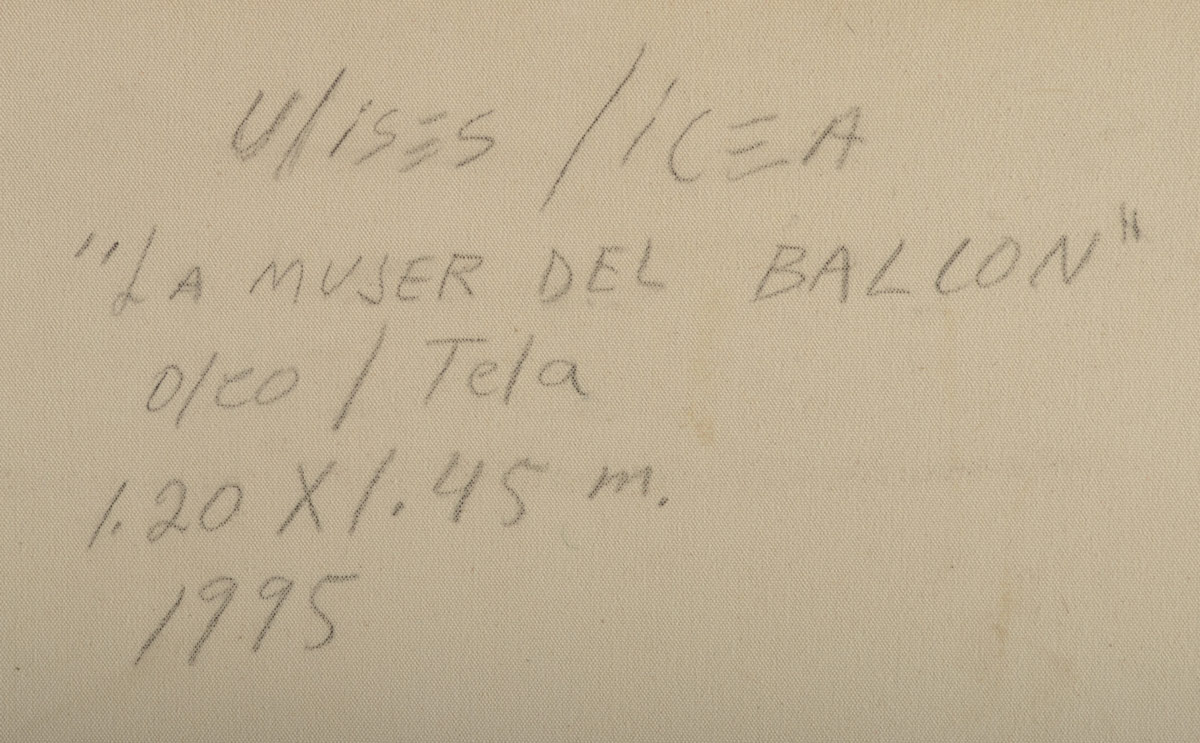 Ulises / ICEA
"LA MUJER DEL BALCON"
oleo / Tela
1.20 X 1.45 m.
1995